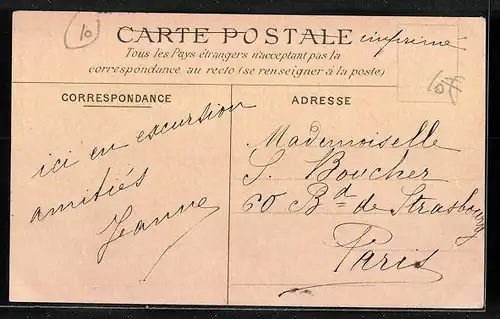 10
CARTE POSTALE
imprimé
Tous les Pays étrangers n'acceptant pas la
correspondance au recto (se renseigner à la poste)
CORRESPONDANCE
ici en excursion
amitiés
Jeanne
ADRESSE
Mademoiselle
S. Boucher
60 Bd de Strasbourg
Paris